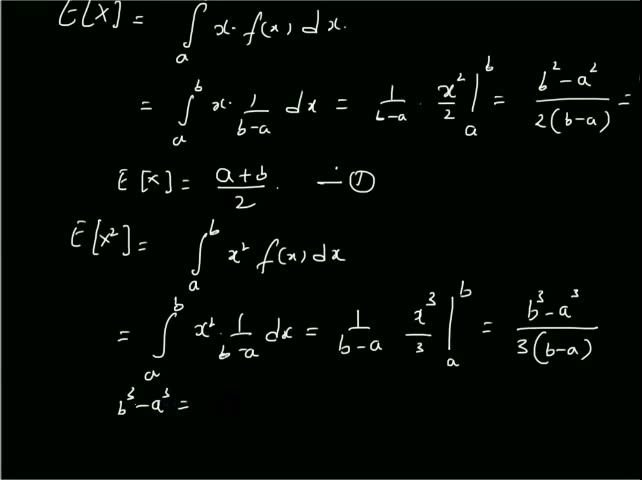 E[X] = ∫ₐ x· f(x) dx.
= ∫ₐᵇ x· 1/(b-a) dx = 1/(b-a) · x²/2 |ₐᵇ = (b²-a²)/(2(b-a)) =
E[X] = (a+b)/2. — ①
E[X²] = ∫ₐᵇ x² f(x) dx
= ∫ₐᵇ x²· 1/(b-a) dx = 1/(b-a) x³/3 |ₐᵇ = (b³-a³)/(3(b-a))
b³-a³ =